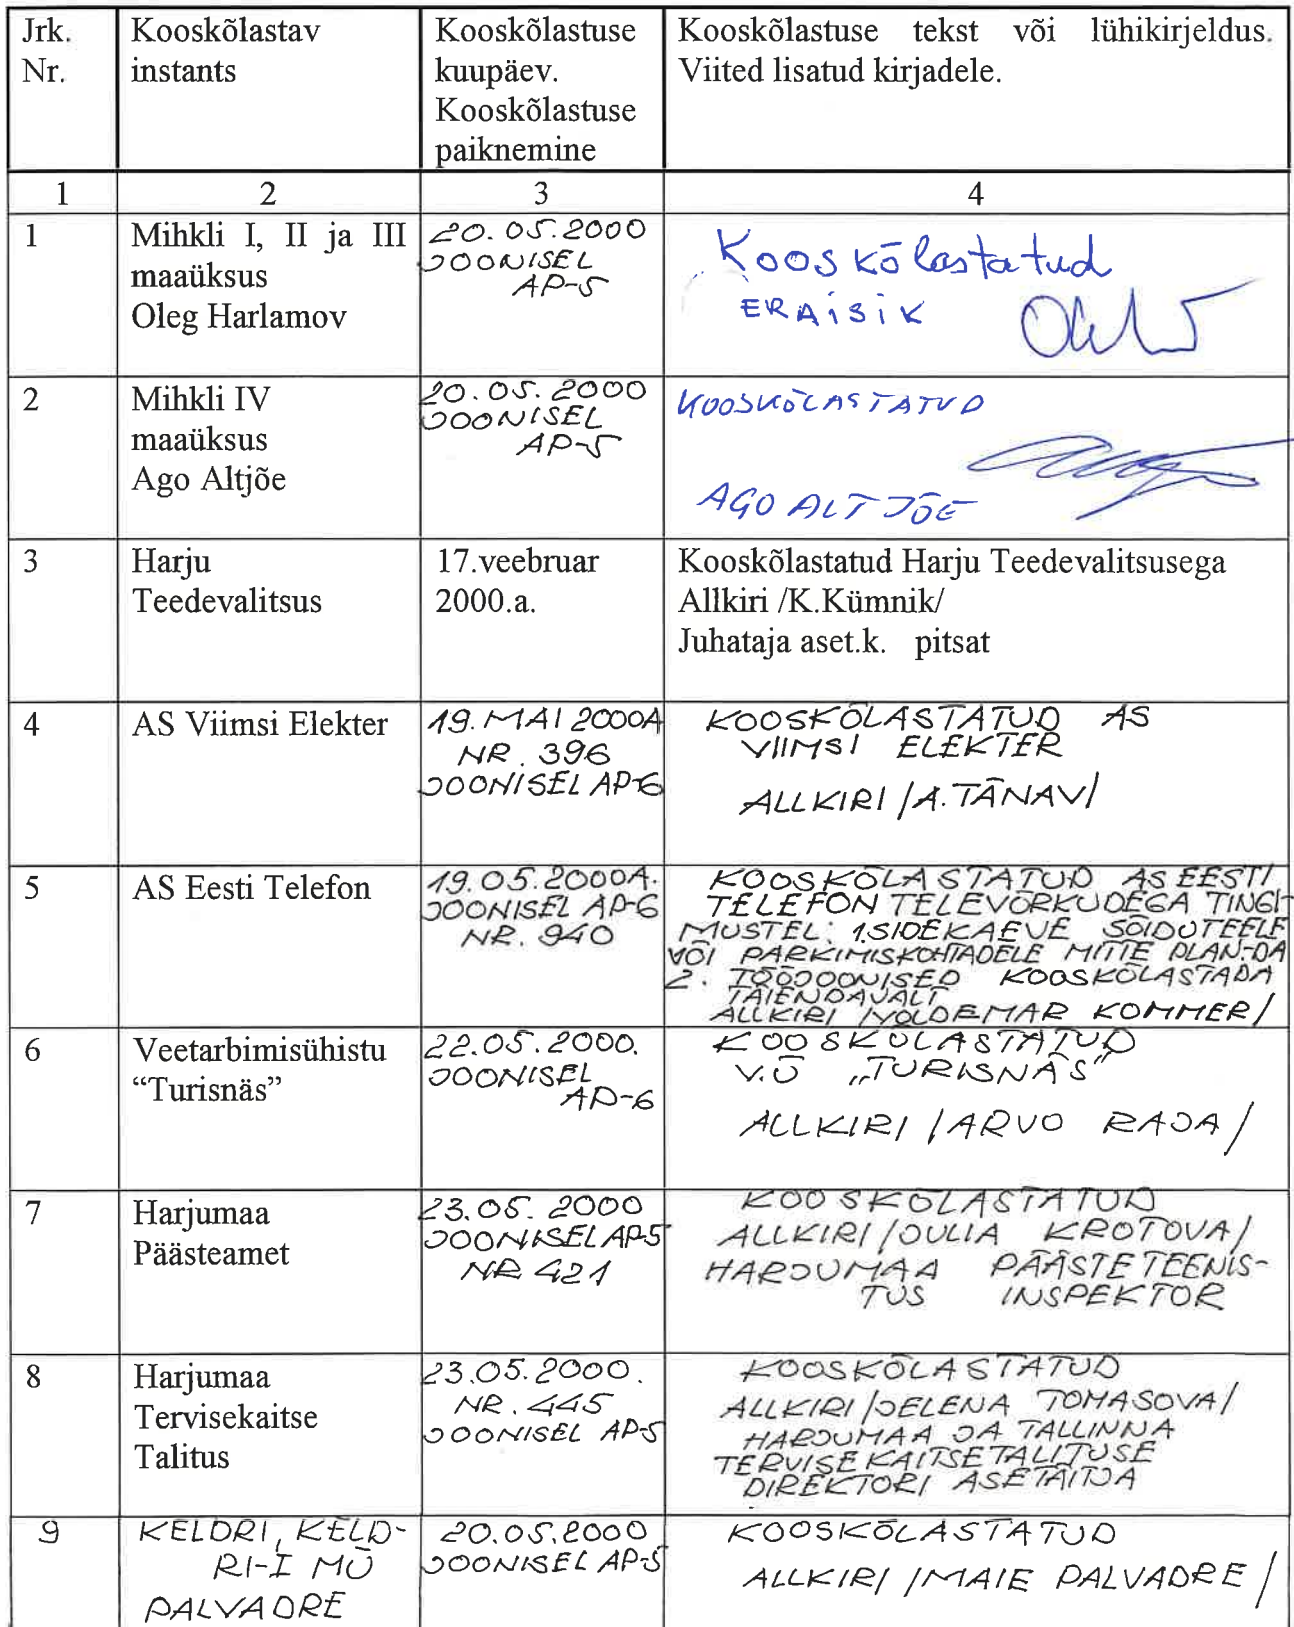 Jrk. Nr.
Kooskõlastav instants
Kooskõlastuse kuupäev. Kooskõlastuse paiknemine
Kooskõlastuse tekst või lühikirjeldus. Viited lisatud kirjadele.
1 2 3 4
1
Mihkli I, II ja III
maaüksus
Oleg Harlamov
20.05.2000
JOONISEL
AP-5
Kooskõlastatud
ERAISIK
2
Mihkli IV
maaüksus
Ago Altjõe
20.05.2000
JOONISEL
AP-5
KOOSKÕLASTATUD
AGO ALTJÕE
3
Harju
Teedevalitsus
17.veebruar
2000.a.
Kooskõlastatud Harju Teedevalitsusega
Allkiri /K.Kümnik/
Juhataja aset.k. pitsat
4
AS Viimsi Elekter
19. MAI 2000A
NR. 396
JOONISEL AP-6
KOOSKÕLASTATUD AS
VIIMSI ELEKTER
ALLKIRI /A.TÄNAV/
5
AS Eesti Telefon
19.05.2000A.
JOONISEL AP-6
NR. 940
KOOSKÕLASTATUD AS EESTI
TELEFON TELEVÕRKUDEGA TINGI-
MUSTEL: 1.SIDEKAEVE SÕIDUTEELE
VÕI PARKIMISKOHTADELE MITTE PLAN-DA
2. TÖÖJOONISED KOOSKÕLASTADA
TÄIENDAVALT
ALLKIRI /VOLDEMAR KOMMER/
6
Veetarbimisühistu
“Turisnäs”
22.05.2000.
JOONISEL
AP-6
KOOSKÕLASTATUD
V.Ü „TURISNÄS”
ALLKIRI /ARVO RAJA/
7
Harjumaa
Päästeamet
23.05.2000
JOONISEL AP-5
NR 421
KOOSKÕLASTATUD
ALLKIRI /JULIA KROTOVA/
HARJUMAA PÄÄSTETEENIS-
TUS INSPEKTOR
8
Harjumaa
Tervisekaitse
Talitus
23.05.2000.
NR. 445
JOONISEL AP-5
KOOSKÕLASTATUD
ALLKIRI /JELENA TOMASOVA/
HARJUMAA JA TALLINNA
TERVISEKAITSETALITUSE
DIREKTORI ASETÄITJA
9
KELDRI, KELD-
RI-I MÜ
PALVADRE
20.05.2000
JOONISEL AP-5
KOOSKÕLASTATUD
ALLKIRI /MAIE PALVADRE/